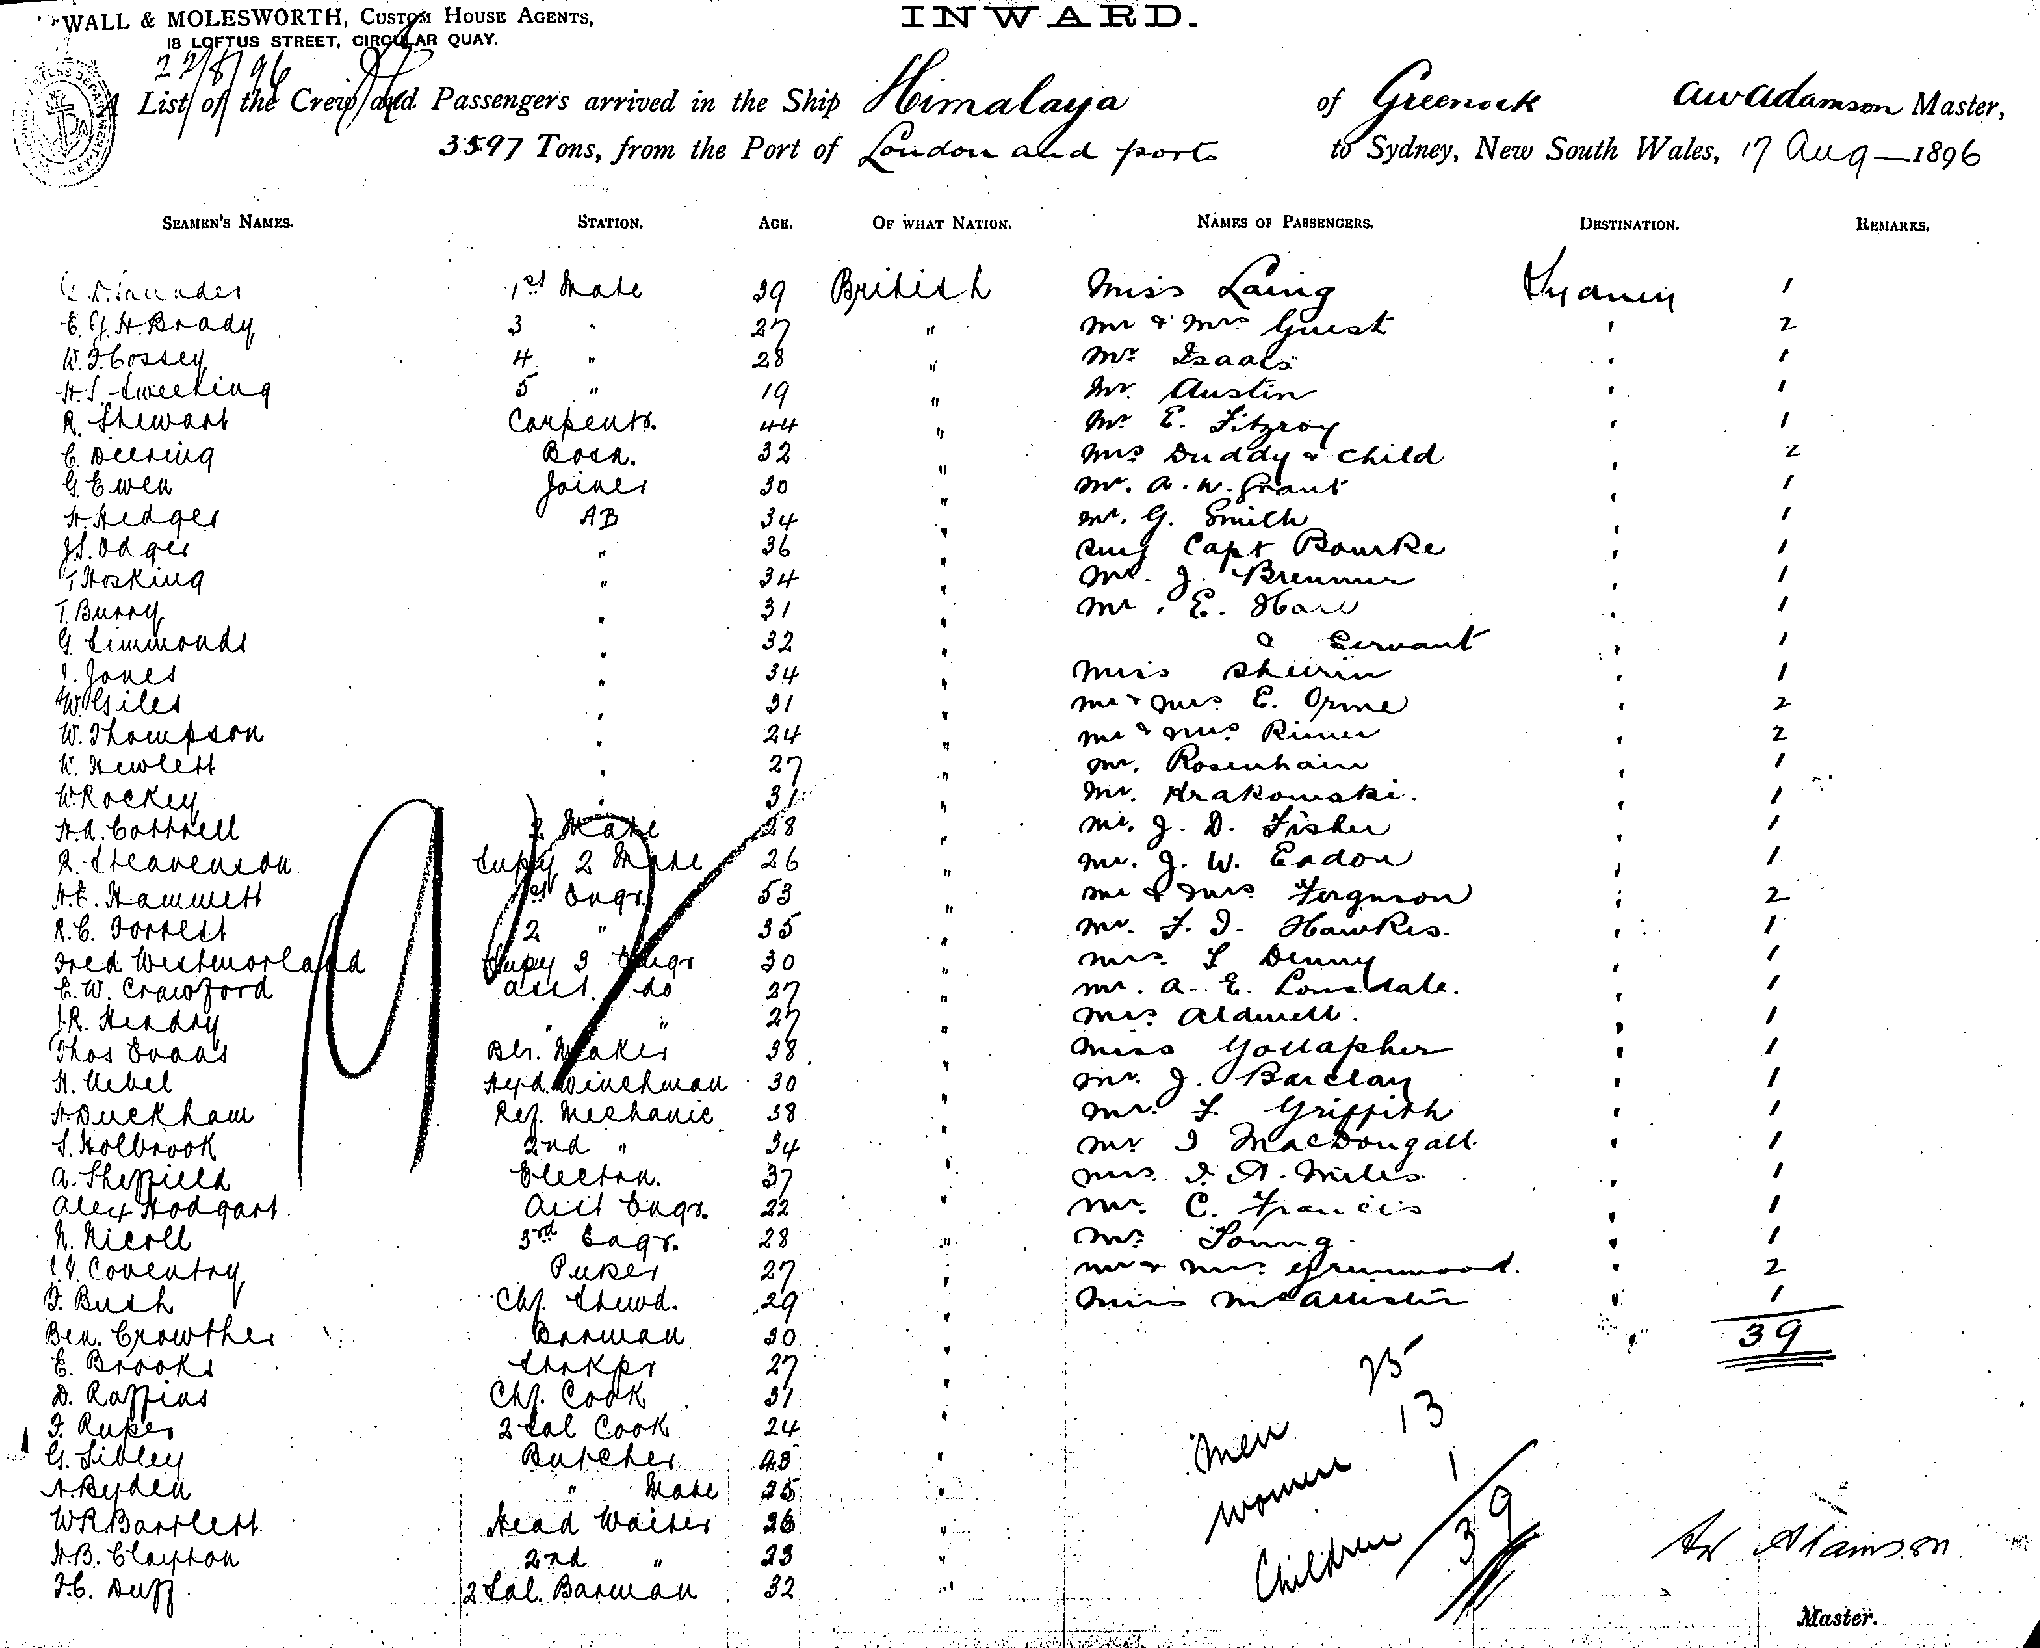 WALL & MOLESWORTH, CUSTOM HOUSE AGENTS,
18 LOFTUS STREET, CIRCULAR QUAY.
INWARD.
22/8/96
A List of the Crew and Passengers arrived in the Ship Himalaya of Greenock AW Adamson Master,
3597 Tons, from the Port of London and ports to Sydney, New South Wales, 17 Aug — 1896
SEAMEN'S NAMES. STATION. AGE. OF WHAT NATION. NAMES OF PASSENGERS. DESTINATION. REMARKS.
Saunders 1st Mate 39 British Miss Laing Sydney 1
E.J.H. Brady 3 " 27 " Mr & Mrs Guest " 2
W.F. Cossey 4 " 28 " Mr. Isaacs " 1
H.S. Sweeting 5 " 19 " Mr. Austin " 1
R. Stewart Carpentr. 44 " Mr E. Fitzroy " 1
C. Deering Bosn. 32 " Mrs Duddy & child " 2
G. Ewen Joiner 30 " Mr. A. W. Grant " 1
H. Hedger AB 34 " Mr. G. Smith " 1
J.S. Odger " 36 " Surg Capt Bourke " 1
T. Hosking " 34 " Mr. J. " 1
T. Burry " 31 " Mr. E. Hare " 1
G. Simmonds " 32 " & Servant " 1
J. Jones " 34 " Miss " 1
W. Giles " 31 " Mr & Mrs E. Orme " 2
W. Thompson " 24 " Mr & Mrs Rimer " 2
W. Hewlett " 27 " Mr. Rosenhain " 1
W. Rockey " 31 " Mr. Krakowski. " 1
H.A. Cottrell 2 Mate 28 " Mr. J. D. Fisher " 1
R. Steavenson Supy 2 Mate 26 " Mr. J. W. Eadon " 1
H.E. Hammett 1st Engr. 53 " Mr & Mrs Ferguson " 2
R.C. Forrest 2 " 35 " Mr. F. J. Hawkes. " 1
Fred Westmorland Supy 3 Engr 30 " Mrs. F Denny " 1
E.W. Crawford Asst. do 27 " Mr. A. E. Lonsdale. " 1
J.R. Hendry " " 27 " Mrs Aldwell. " 1
Thos Evans Blr. Maker 38 " Miss Gollapher " 1
H. Uebel Hyd. Winchman 30 " Mr. J. Barclay " 1
H. Duckham Ref. Mechanic 38 " Mr. F. Griffith " 1
S. Holbrook 2nd " 34 " Mr J MacDougall " 1
A. Sheffield Electrn. 37 " Mrs. J. A. Miles " 1
Alex Hodgart Asst Engr. 22 " Mr. C. Francis " 1
N. Nicoll 3rd Engr. 28 " Mr. Young. " 1
Coventry Purser 27 " Mr & Mrs. Greenwood. " 2
F. Bush Chf. Stewd. 29 " Miss McAllister " 1
Ben. Crowther Barman 30 " " 39
E. Brooks Storkpr 27 "
D. Raffins Chf. Cook 31 "
F. Ruper 2 Sal Cook 24 "
G. Sibley Butcher "
A. Ryden " Mate 25 "
W R Bartlett Head Waiter 26 "
H.B. Clayton 2nd " 23 "
F.C. Duff 2 Sal. Barman 32 "
Men 25
Women 13
Children 1
39
AW Adamson
Master.
97